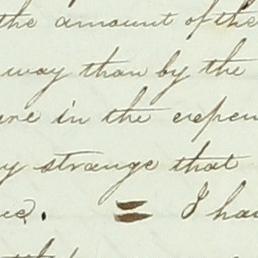 the amount of the
way than by the
are in the expen
y strange that
= I hav